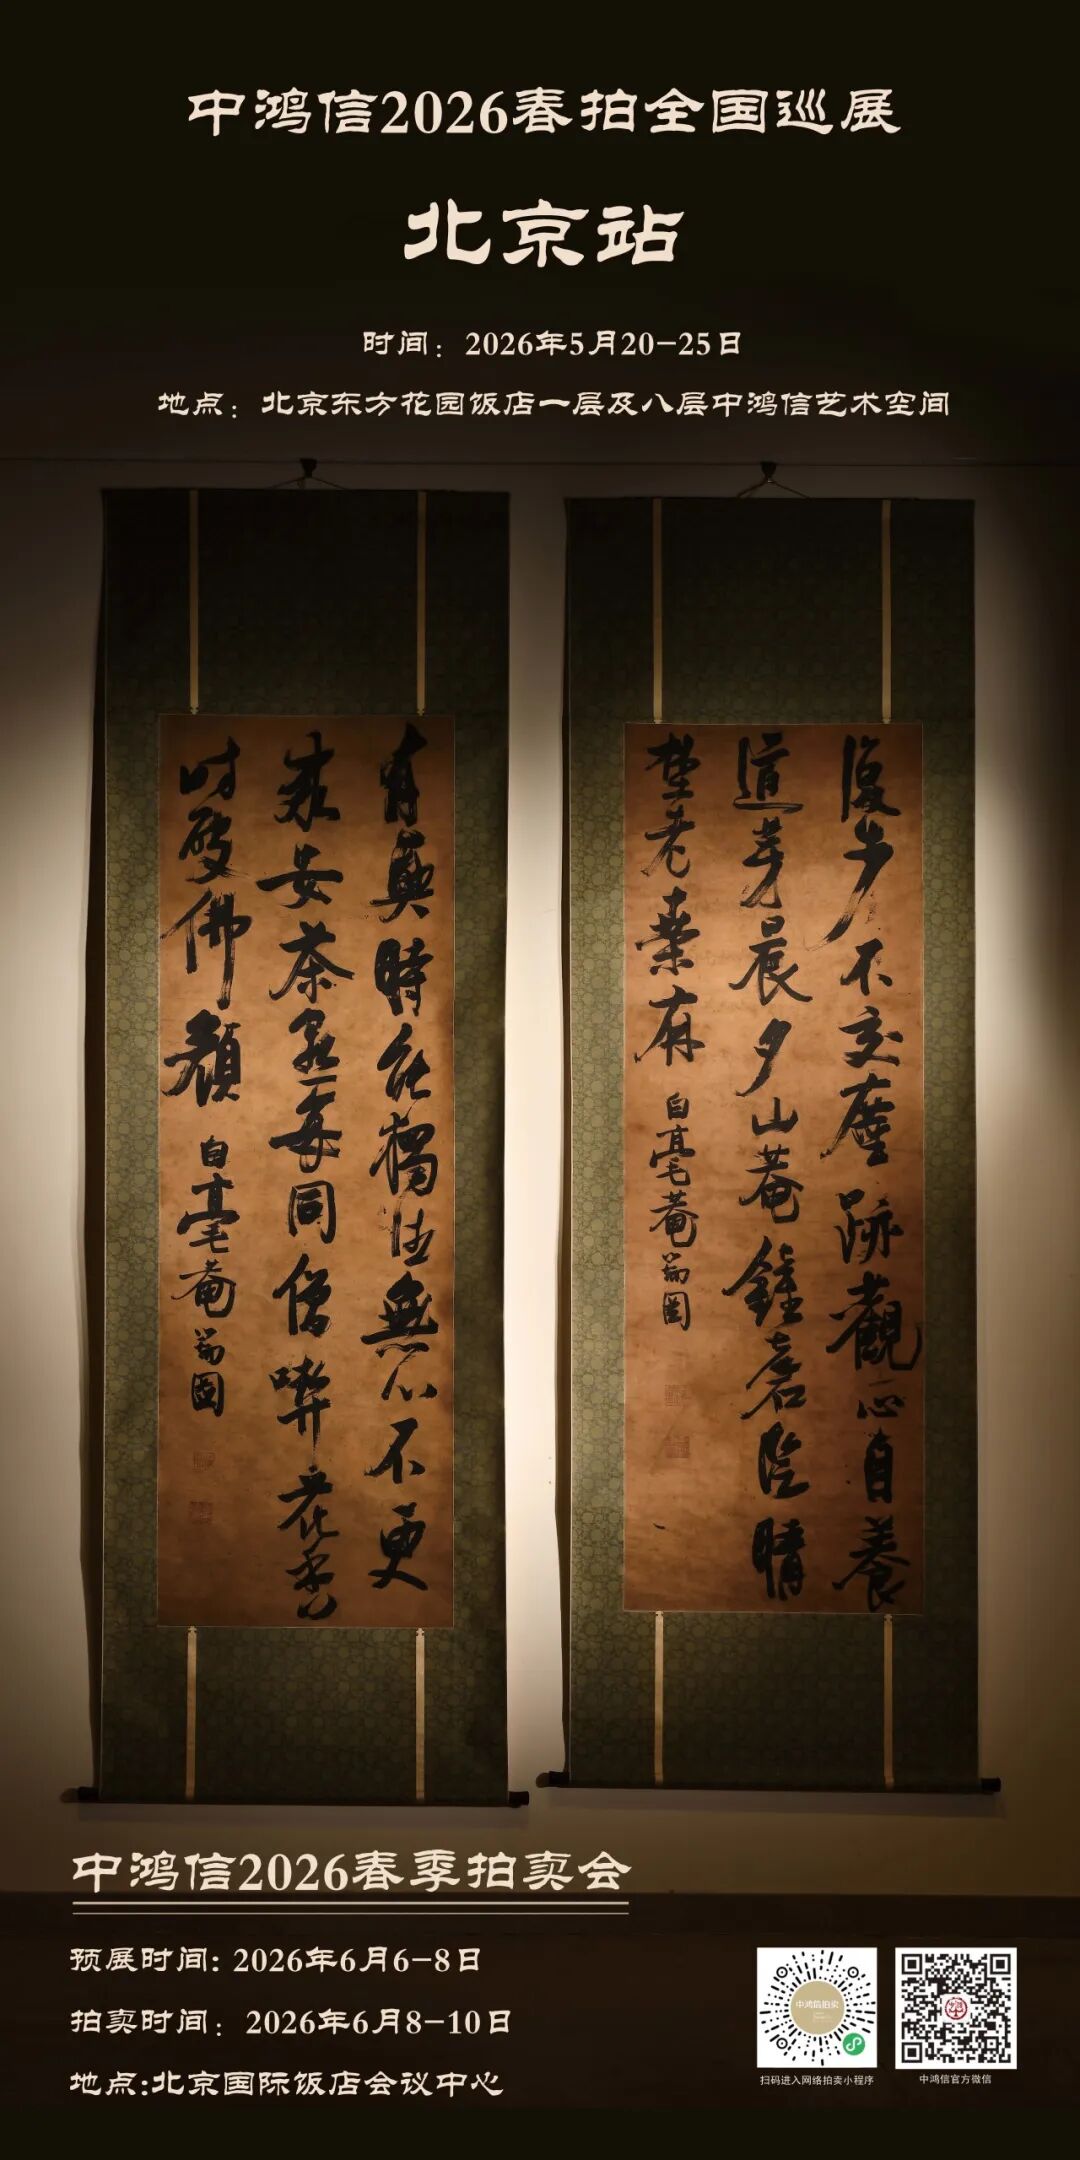 中鸿信2026春拍全国巡展
北京站
时间：2026年5月20-25日
地点：北京东方花园饭店一层及八层中鸿信艺术空间
步不交塵跡觀心自養
道芽晨夕山菴鐘磬陰晴
埜老桑麻
白毫菴瑞图
有興時能獨往無心不更
求安茶每同僧花香
时佛顏
白毫菴瑞图
中鸿信2026春季拍卖会
预展时间: 2026年6月6-8日
拍卖时间：2026年6月8-10日
地点:北京国际饭店会议中心
中鸿信拍卖
扫码进入网络拍卖小程序
中鸿信官方微信